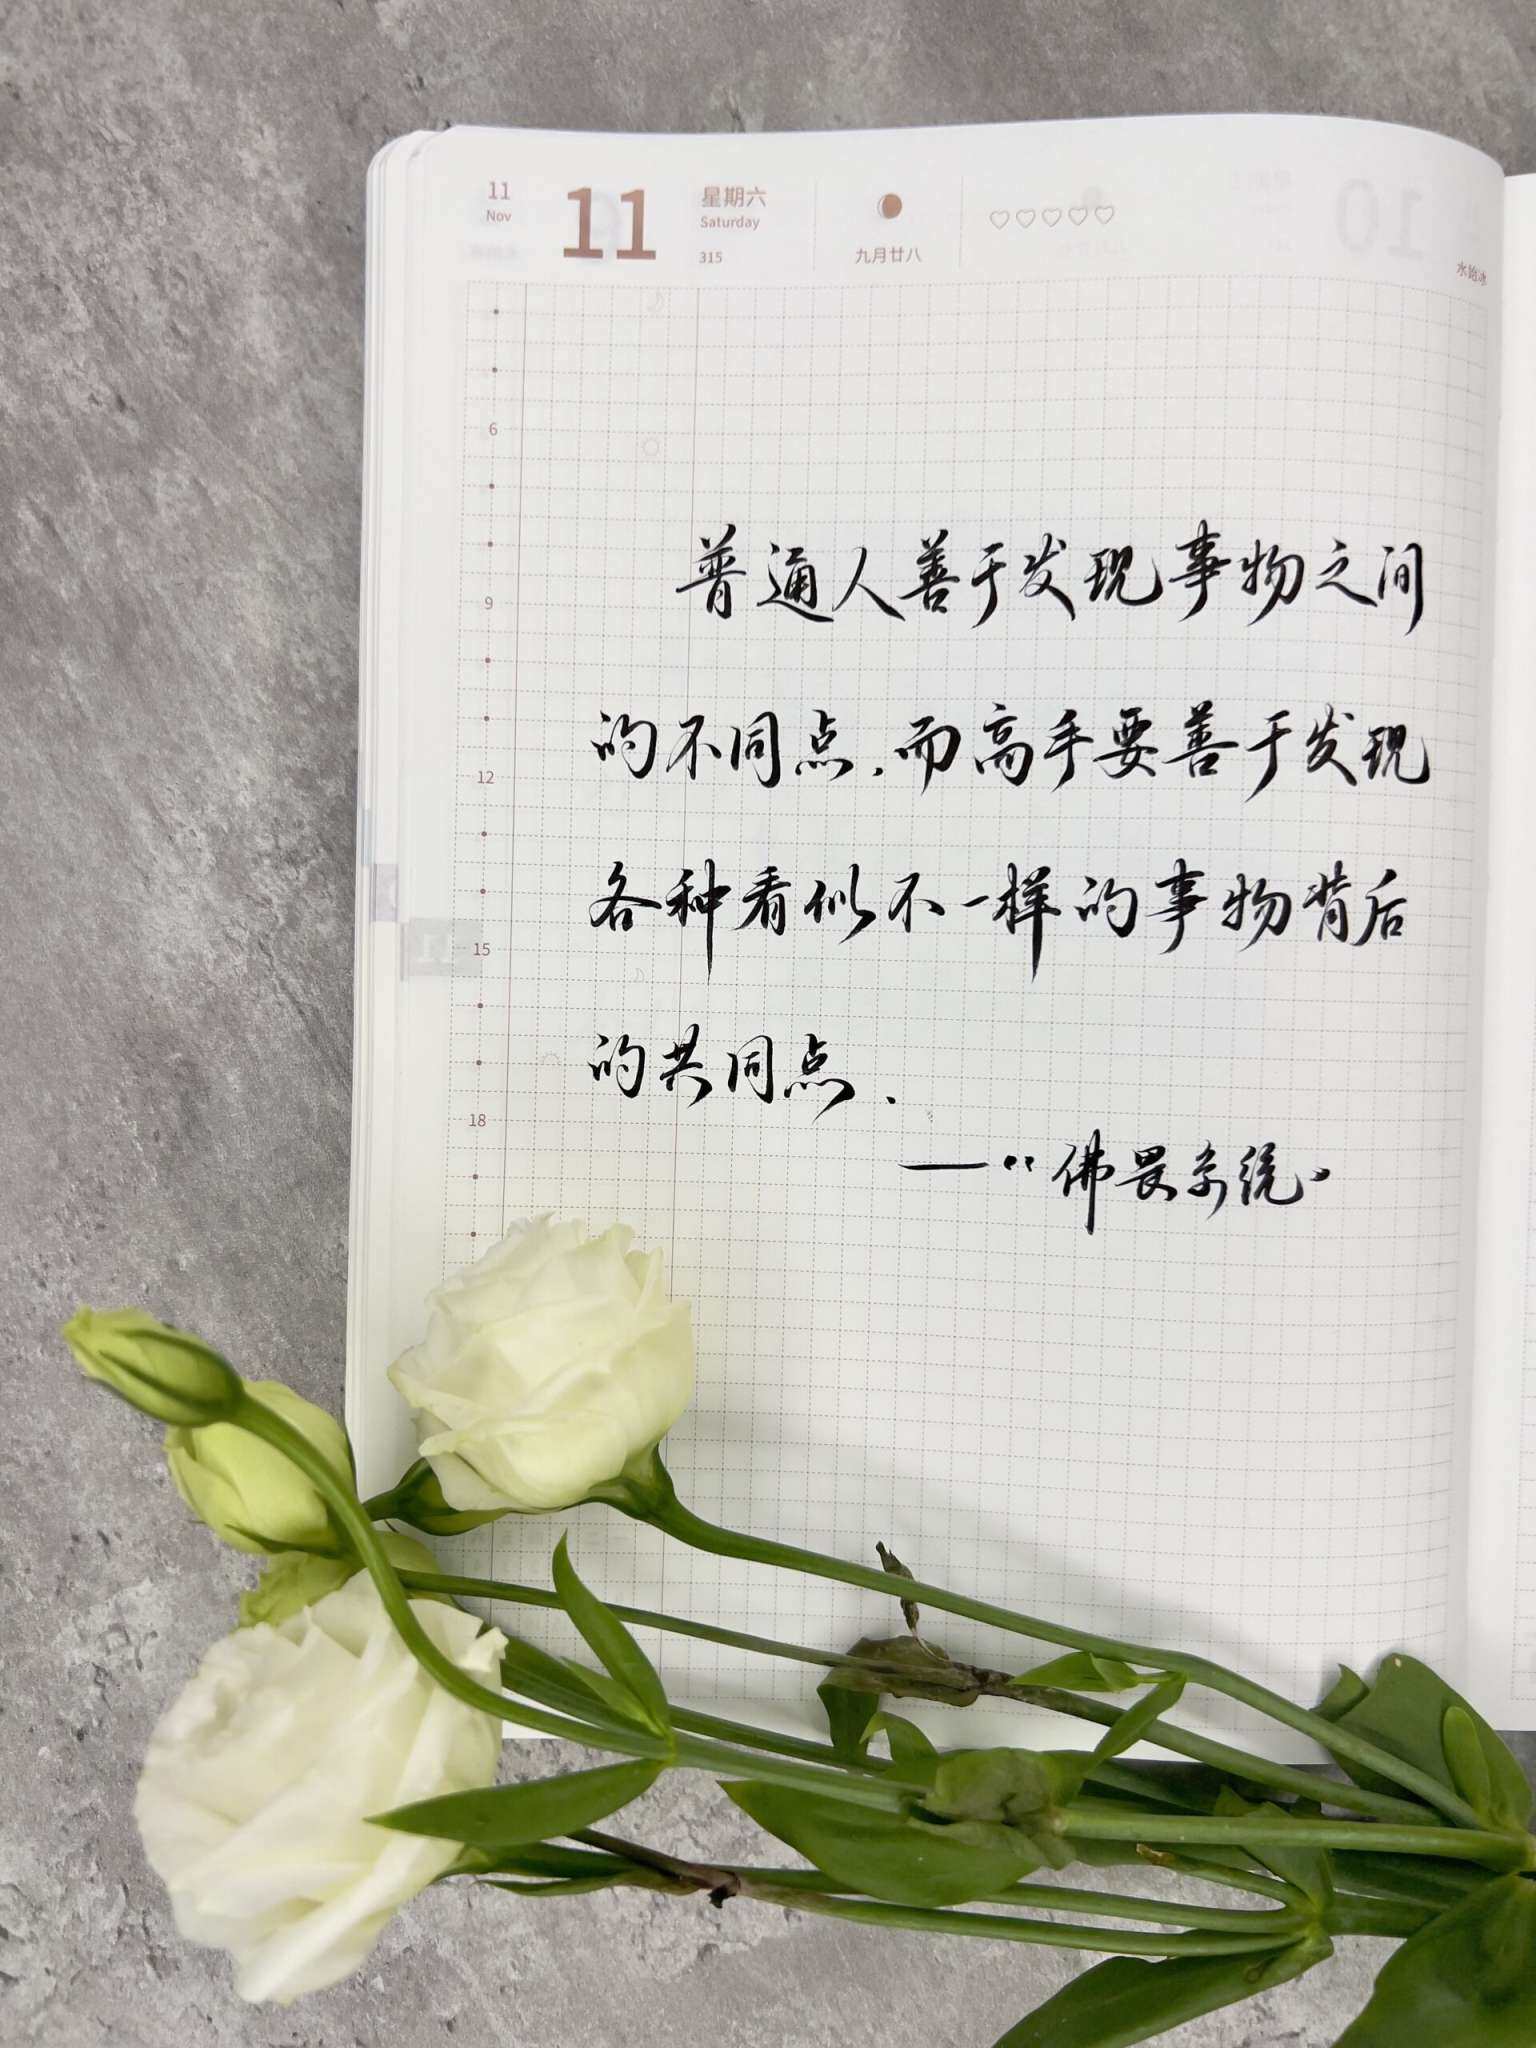 11
Nov
11
星期六
Saturday
315
九月廿八
10
水始冰
6
9
12
15
18
11
普通人善于发现事物之间
的不同点.而高手要善于发现
各种看似不一样的事物背后
的共同点.
—"佛畏系统"